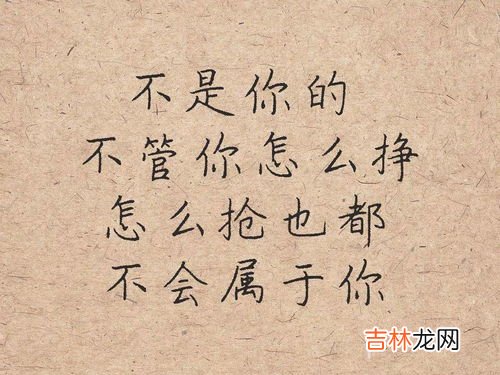 不是你的
不管你怎么挣
怎么抢也都
不会属于你
吉林龙网